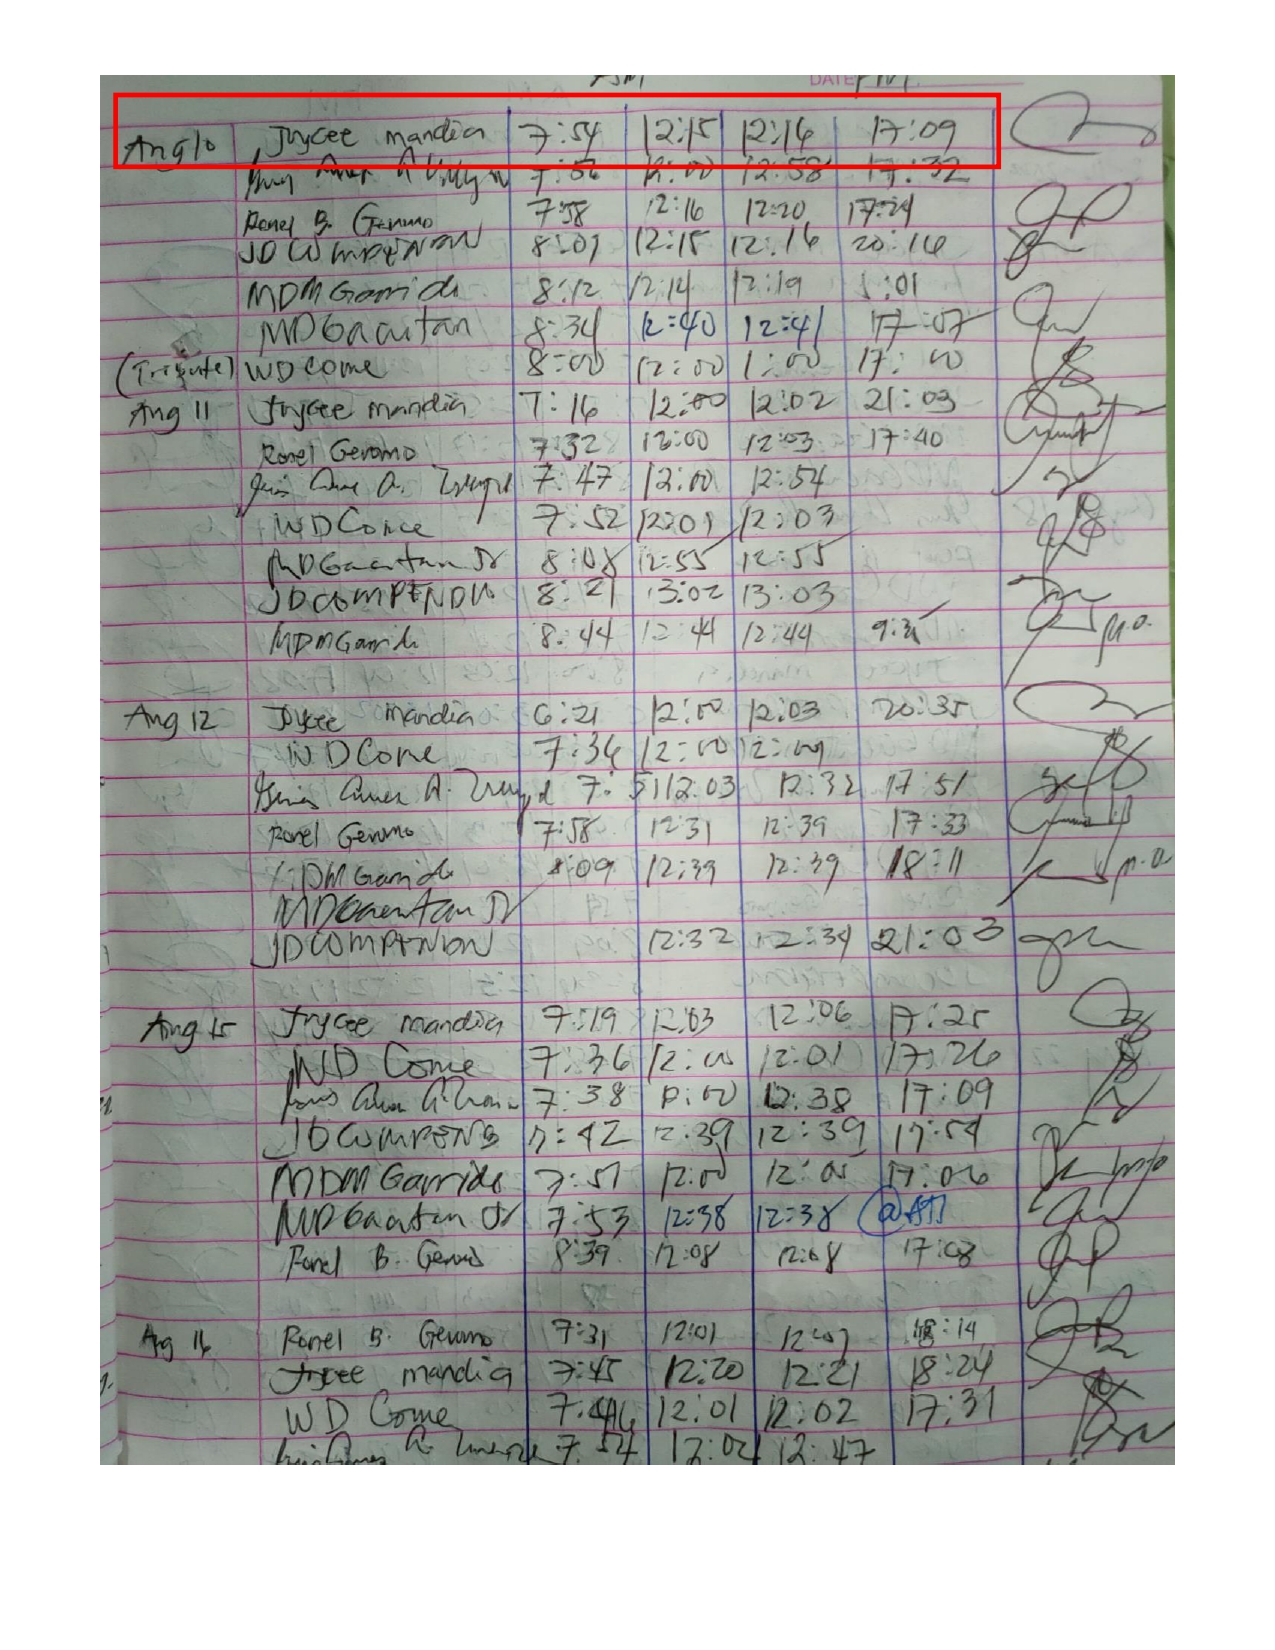 DATE PM
Aug 10 Joycee mandia 7:54 12:15 12:16 17:09
12:00 12:58 17:32
Ronel B. Geromo 7:58 12:16 12:20 17:24
JDCOMPENDON 8:01 12:15 12:16 20:16
MDMGarrido 8:12 12:14 12:19 :01
MDGacutan 8:34 12:40 12:41 17:07
(Tribute) WDCome 8:00 12:00 1:00 17:00
Aug 11 Joycee mandia 7:16 12:00 12:02 21:03
Ronel Geromo 7:32 12:00 12:03 17:40
A. 7:47 12:00 12:54
WDCome 7:52 12:01 12:03
MDGacutan Jr 8:08 12:55 12:55
JDCOMPENDON 8:21 13:02 13:03
MDMGarrido 8:44 12:44 12:44
Aug 12 Joycee mandia 6:21 12:00 12:03 20:35
WDCome 7:36 12:00 12:09
A. 7:51 12:03 12:32 17:51
Ronel Geromo 7:58 12:31 12:39 17:33
MDMGarrido 8:09 12:39 12:39 18:11
MDGacutan Jr
JDCOMPENDON 12:32 12:34 21:03
Aug 15 Joycee mandia 7:19 12:03 12:06 17:25
WD Come 7:36 12:00 12:01 17:26
7:38 12:00 12:38 17:09
JDCOMPENDON 7:42 12:39 12:39 17:54
MDM Garrido 7:51 12:00 12:00 17:06
MDGacutan Jr 7:53 12:38 12:38
Ronel B. Geromo 8:39 12:08 12:08 17:03
Aug 16 Ronel B. Geromo 7:31 12:01 12:07 18:14
Joycee mandia 7:45 12:20 12:21 18:24
WD Come 7:46 12:01 12:02 17:31
A. 7:54 12:02 12:47